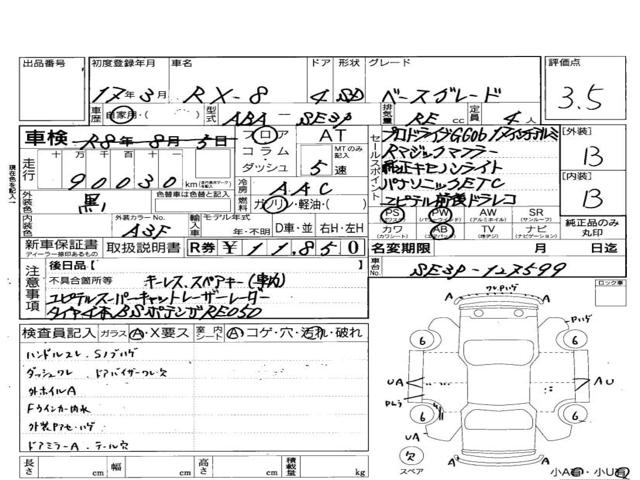 出品番号 初度登録年月 車名 ドア 形状 グレード 評価点
17年3月 RX-8 4 SD ベースグレード 3.5
車歴 自家用・( ) 型式 ABA-SE3P 排気量 RE cc 定員 4人
車検 R8年8月5日 フロア AT セールスポイント
走行 十万 万 千 百 十 コラム MTのみ記入 Rマジックマフラー
90030 km ダッシュ 5速 純正キセノンライト
現在色を記入 冷房 AAC パナソニックETC
外装色 黒 色替車は色替と記入 燃料 ガソリン・軽油・( ) ユピテル前後ドラレコ
【外装】 B
【内装】 B
内装色 外装カラーNo. A3F 輸入車 モデル年式 年・不明 D車・並 右H・左H
PS PW AW SR
(パワステ) (パワーウィンドウ) (アルミホイール) (サンルーフ)
カワ AB TV ナビ
(カワシート) (エアバッグ) (ナビゲーション)
純正品のみ丸印
新車保証書 取扱説明書 R券 ¥11,850 名変期限 月 日迄
ディーラー捺印のあるもの
注意事項 後日品【 】 車台No. SE3P-127599
不具合箇所等 キーレス、スペアキー
ユピテルスーパーキャットレーザーレーダー
タイヤ4本BSポテンザRE050
ロック車
検査員記入 ガラス A・X要ス 室内シート A コゲ・穴・汚れ・破れ
ハンドルスレ、Sノブハゲ
ダッシュワレ、ドアバイザーワレ欠
外ホイルA
Fウインカー内水
ドアミラーA・テール欠
Pハゲ
6 6
UA AU
6 6
UA
欠
スペア
A A
長さ cm 幅 cm 高さ cm 積載量 kg 小A有・小U有